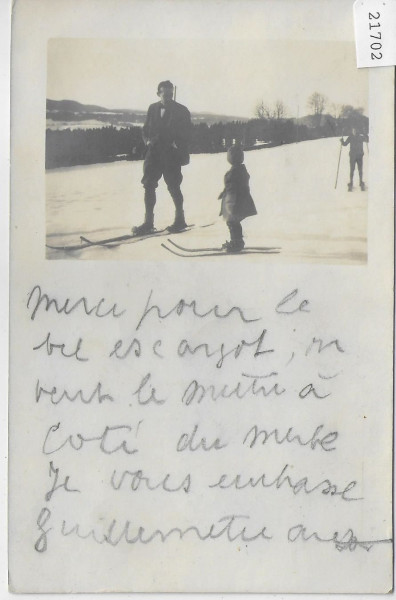 21702
Merci pour le
bel escargot, on
veut le mettre à
Coté du merle
Je vous embrasse
Guillemette